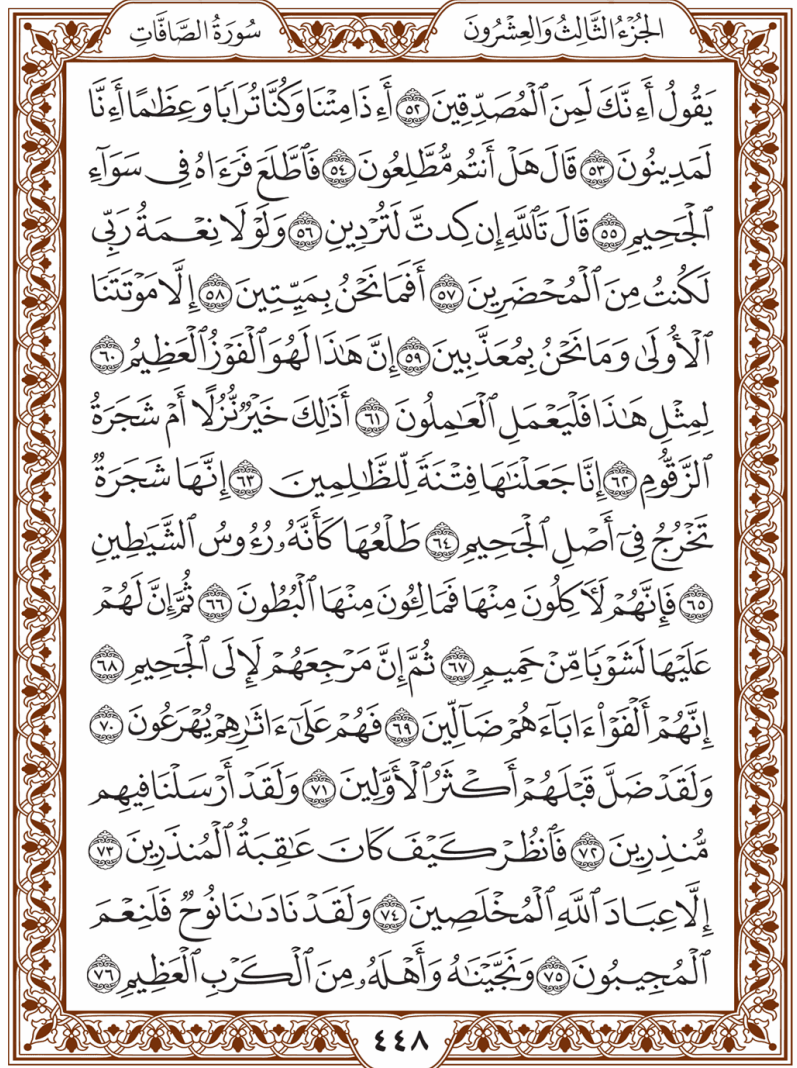 الجُزْءُ الثَّالِثُ وَالعِشْرُونَ
سُورَةُ الصَّافَّاتِ
يَقُولُ أَءِنَّكَ لَمِنَ ٱلْمُصَدِّقِينَ ٥٢ أَءِذَا مِتْنَا وَكُنَّا تُرَابًا وَعِظَٰمًا أَءِنَّا
لَمَدِينُونَ ٥٣ قَالَ هَلْ أَنتُم مُّطَّلِعُونَ ٥٤ فَٱطَّلَعَ فَرَءَاهُ فِى سَوَآءِ
ٱلْجَحِيمِ ٥٥ قَالَ تَٱللَّهِ إِن كِدتَّ لَتُرْدِينِ ٥٦ وَلَوْلَا نِعْمَةُ رَبِّى
لَكُنتُ مِنَ ٱلْمُحْضَرِينَ ٥٧ أَفَمَا نَحْنُ بِمَيِّتِينَ ٥٨ إِلَّا مَوْتَتَنَا
ٱلْأُولَىٰ وَمَا نَحْنُ بِمُعَذَّبِينَ ٥٩ إِنَّ هَٰذَا لَهُوَ ٱلْفَوْزُ ٱلْعَظِيمُ ٦٠
لِمِثْلِ هَٰذَا فَلْيَعْمَلِ ٱلْعَٰمِلُونَ ٦١ أَذَٰلِكَ خَيْرٌ نُّزُلًا أَمْ شَجَرَةُ
ٱلزَّقُّومِ ٦٢ إِنَّا جَعَلْنَٰهَا فِتْنَةً لِّلظَّٰلِمِينَ ٦٣ إِنَّهَا شَجَرَةٌ
تَخْرُجُ فِىٓ أَصْلِ ٱلْجَحِيمِ ٦٤ طَلْعُهَا كَأَنَّهُۥ رُءُوسُ ٱلشَّيَٰطِينِ
٦٥ فَإِنَّهُمْ لَءَاكِلُونَ مِنْهَا فَمَالِـُٔونَ مِنْهَا ٱلْبُطُونَ ٦٦ ثُمَّ إِنَّ لَهُمْ
عَلَيْهَا لَشَوْبًا مِّنْ حَمِيمٍ ٦٧ ثُمَّ إِنَّ مَرْجِعَهُمْ لَإِلَى ٱلْجَحِيمِ ٦٨
إِنَّهُمْ أَلْفَوْا۟ ءَابَآءَهُمْ ضَآلِّينَ ٦٩ فَهُمْ عَلَىٰٓ ءَاثَٰرِهِمْ يُهْرَعُونَ ٧٠
وَلَقَدْ ضَلَّ قَبْلَهُمْ أَكْثَرُ ٱلْأَوَّلِينَ ٧١ وَلَقَدْ أَرْسَلْنَا فِيهِم
مُّنذِرِينَ ٧٢ فَٱنظُرْ كَيْفَ كَانَ عَٰقِبَةُ ٱلْمُنذَرِينَ ٧٣
إِلَّا عِبَادَ ٱللَّهِ ٱلْمُخْلَصِينَ ٧٤ وَلَقَدْ نَادَىٰنَا نُوحٌ فَلَنِعْمَ
ٱلْمُجِيبُونَ ٧٥ وَنَجَّيْنَٰهُ وَأَهْلَهُۥ مِنَ ٱلْكَرْبِ ٱلْعَظِيمِ ٧٦
٤٤٨